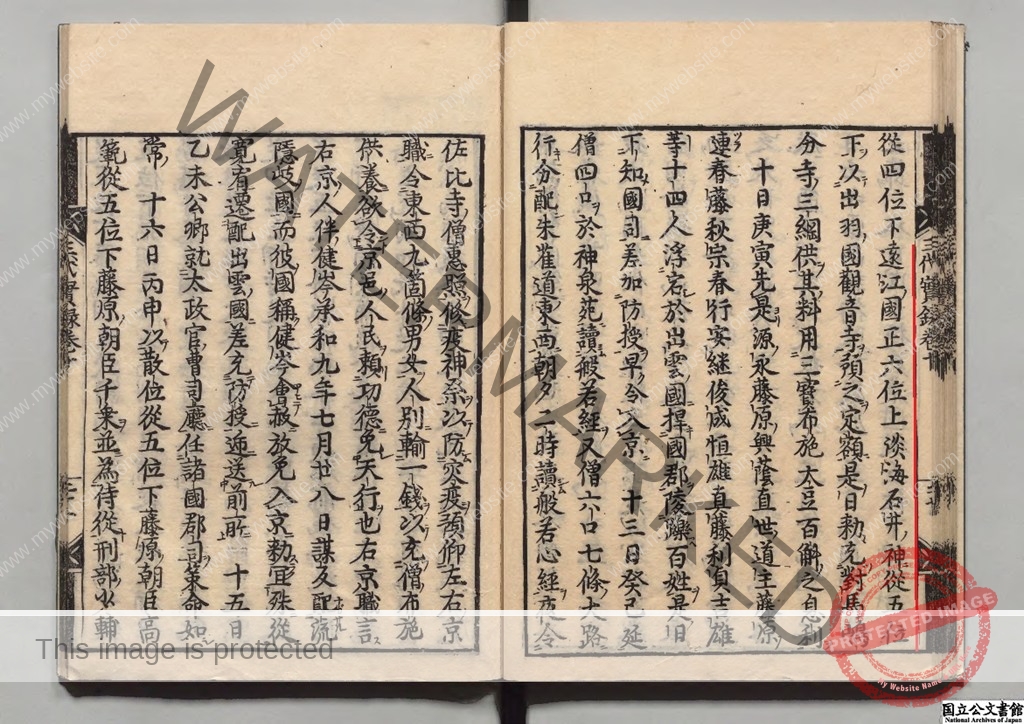 從四位下遠江國正六位上淡海石井神從五位
下以出羽國觀音寺預之定額是日勅充對馬
分寺三綱供其料用三寶布施大豆百斛之息利
十日庚寅先是源永藤原興蔭直世道主藤原
連春藤秋宗春行安継俊成恒雄直藤利貞吉雄
等十四人浮宕於出雲國捍國郡陵轢百姓是日
下知國司差加防援早令入京 十三日癸巳延
僧四口於神泉苑讀般若經又僧六口七條大路
行分配朱雀道東西朝夕二時讀般若心經夜令
佐比寺僧惠照修疫神祭以防灾疫預仰左右京
職令東西九箇條男女人別輸一錢以充僧布施
供養欲令京邑人民賴功德免天行也右京職言
右京人伴健岑承和九年七月廿八日謀反配流
隱岐國而彼國稱健岑會赦放免入京勅宜殊從
寛宥遷配出雲國差充防援逓送前所 十五日
乙未公卿就太政官曹司廳任諸國郡司策命如
常 十六日丙申以散位從五位下藤原朝臣高
範從五位下藤原朝臣千乗並為侍從刑部少輔
三代實錄卷十
三代實錄卷十
WATERMARKED
www.mywebsite.com
This image is protected
PROTECTED IMAGE
My Website Name
国立公文書館
National Archives of Japan